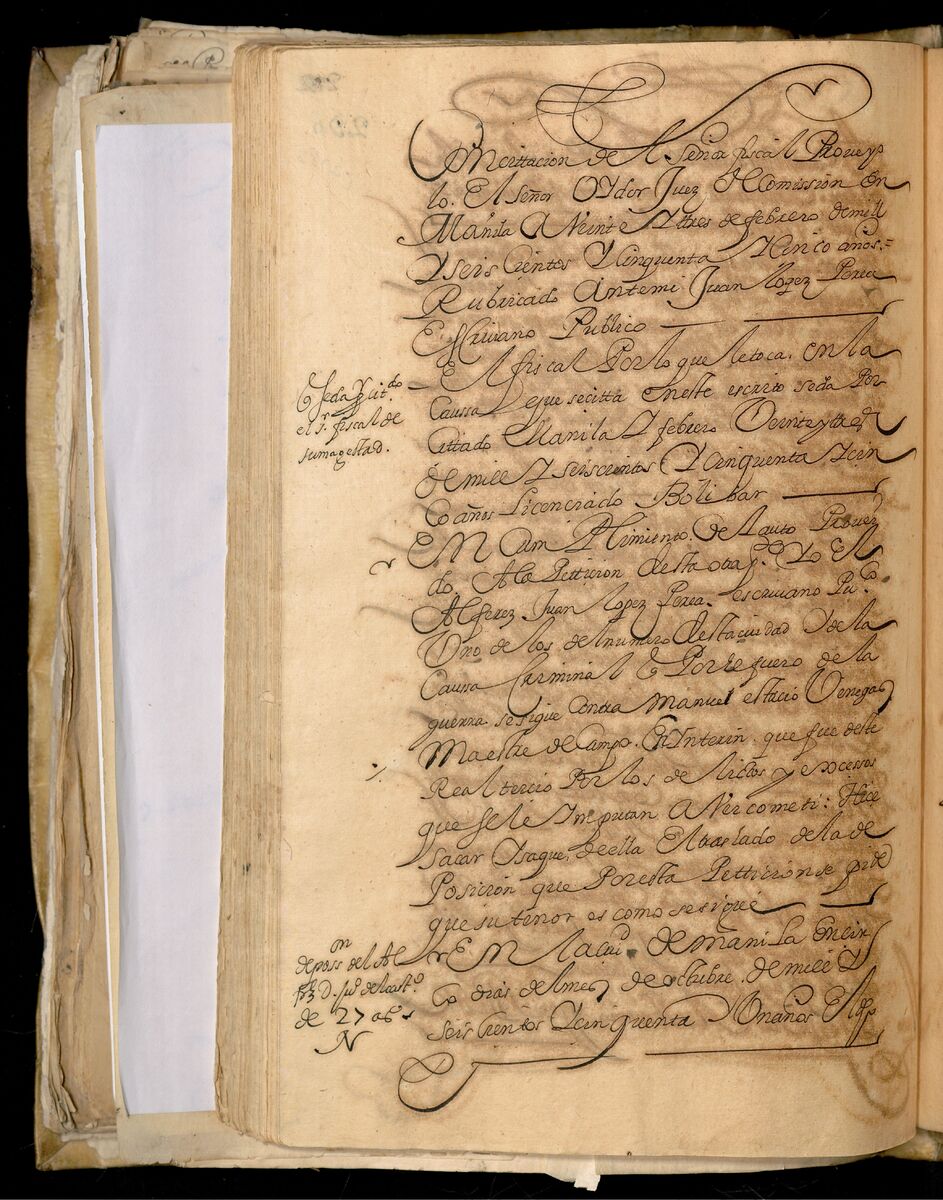 Con cittacion de el Señor fiscal Proueyo
lo. El señor Oydor Juez de Comission En
Manila A Veinte Y tres de febrero de mill
Y seis Cientos Y Cinquenta Y Cinco años =
Rubricado Antemi Juan lopez Perea
Escriuano Publico
El fiscal Por lo que le toca. en la
Caussa que se citta eneste escrito se da Por
Cittado Manila Y febrero Veinte y tres
de mill Y seiscientos Y Cinquenta Y Cin
Co años Licenciado Bolibar
En Cum Plimiento. del auto Prouei
do A la Petticion desta otra pte Yo El
Alferez Juan lopez Perea. escriuano Puco
Vno de los del numero desta ciudad Y de la
Caussa Criminal q Por el fuero de la
guerra. se sigue Contra Manuel estacio Venegas
Maestre de Campo. En Ynterin. que fue deste
Real tercio Por los delictos y excessos
que se le Ymputan Auer cometi: Hice
sacar Y saque. de ella El traslado de la de
Posicion que Por esta Petticion se pide
que su tenor es como se sigue
En la ciud. de manila En cin
Co dias del mes de octubre. de mill Y
seis Cientos Y cinquenta Y Vn años El
Y se da Por citdo
el sr. fiscal de
su magestad.
deposson del Al
frz D. juo de
de 27 as
N